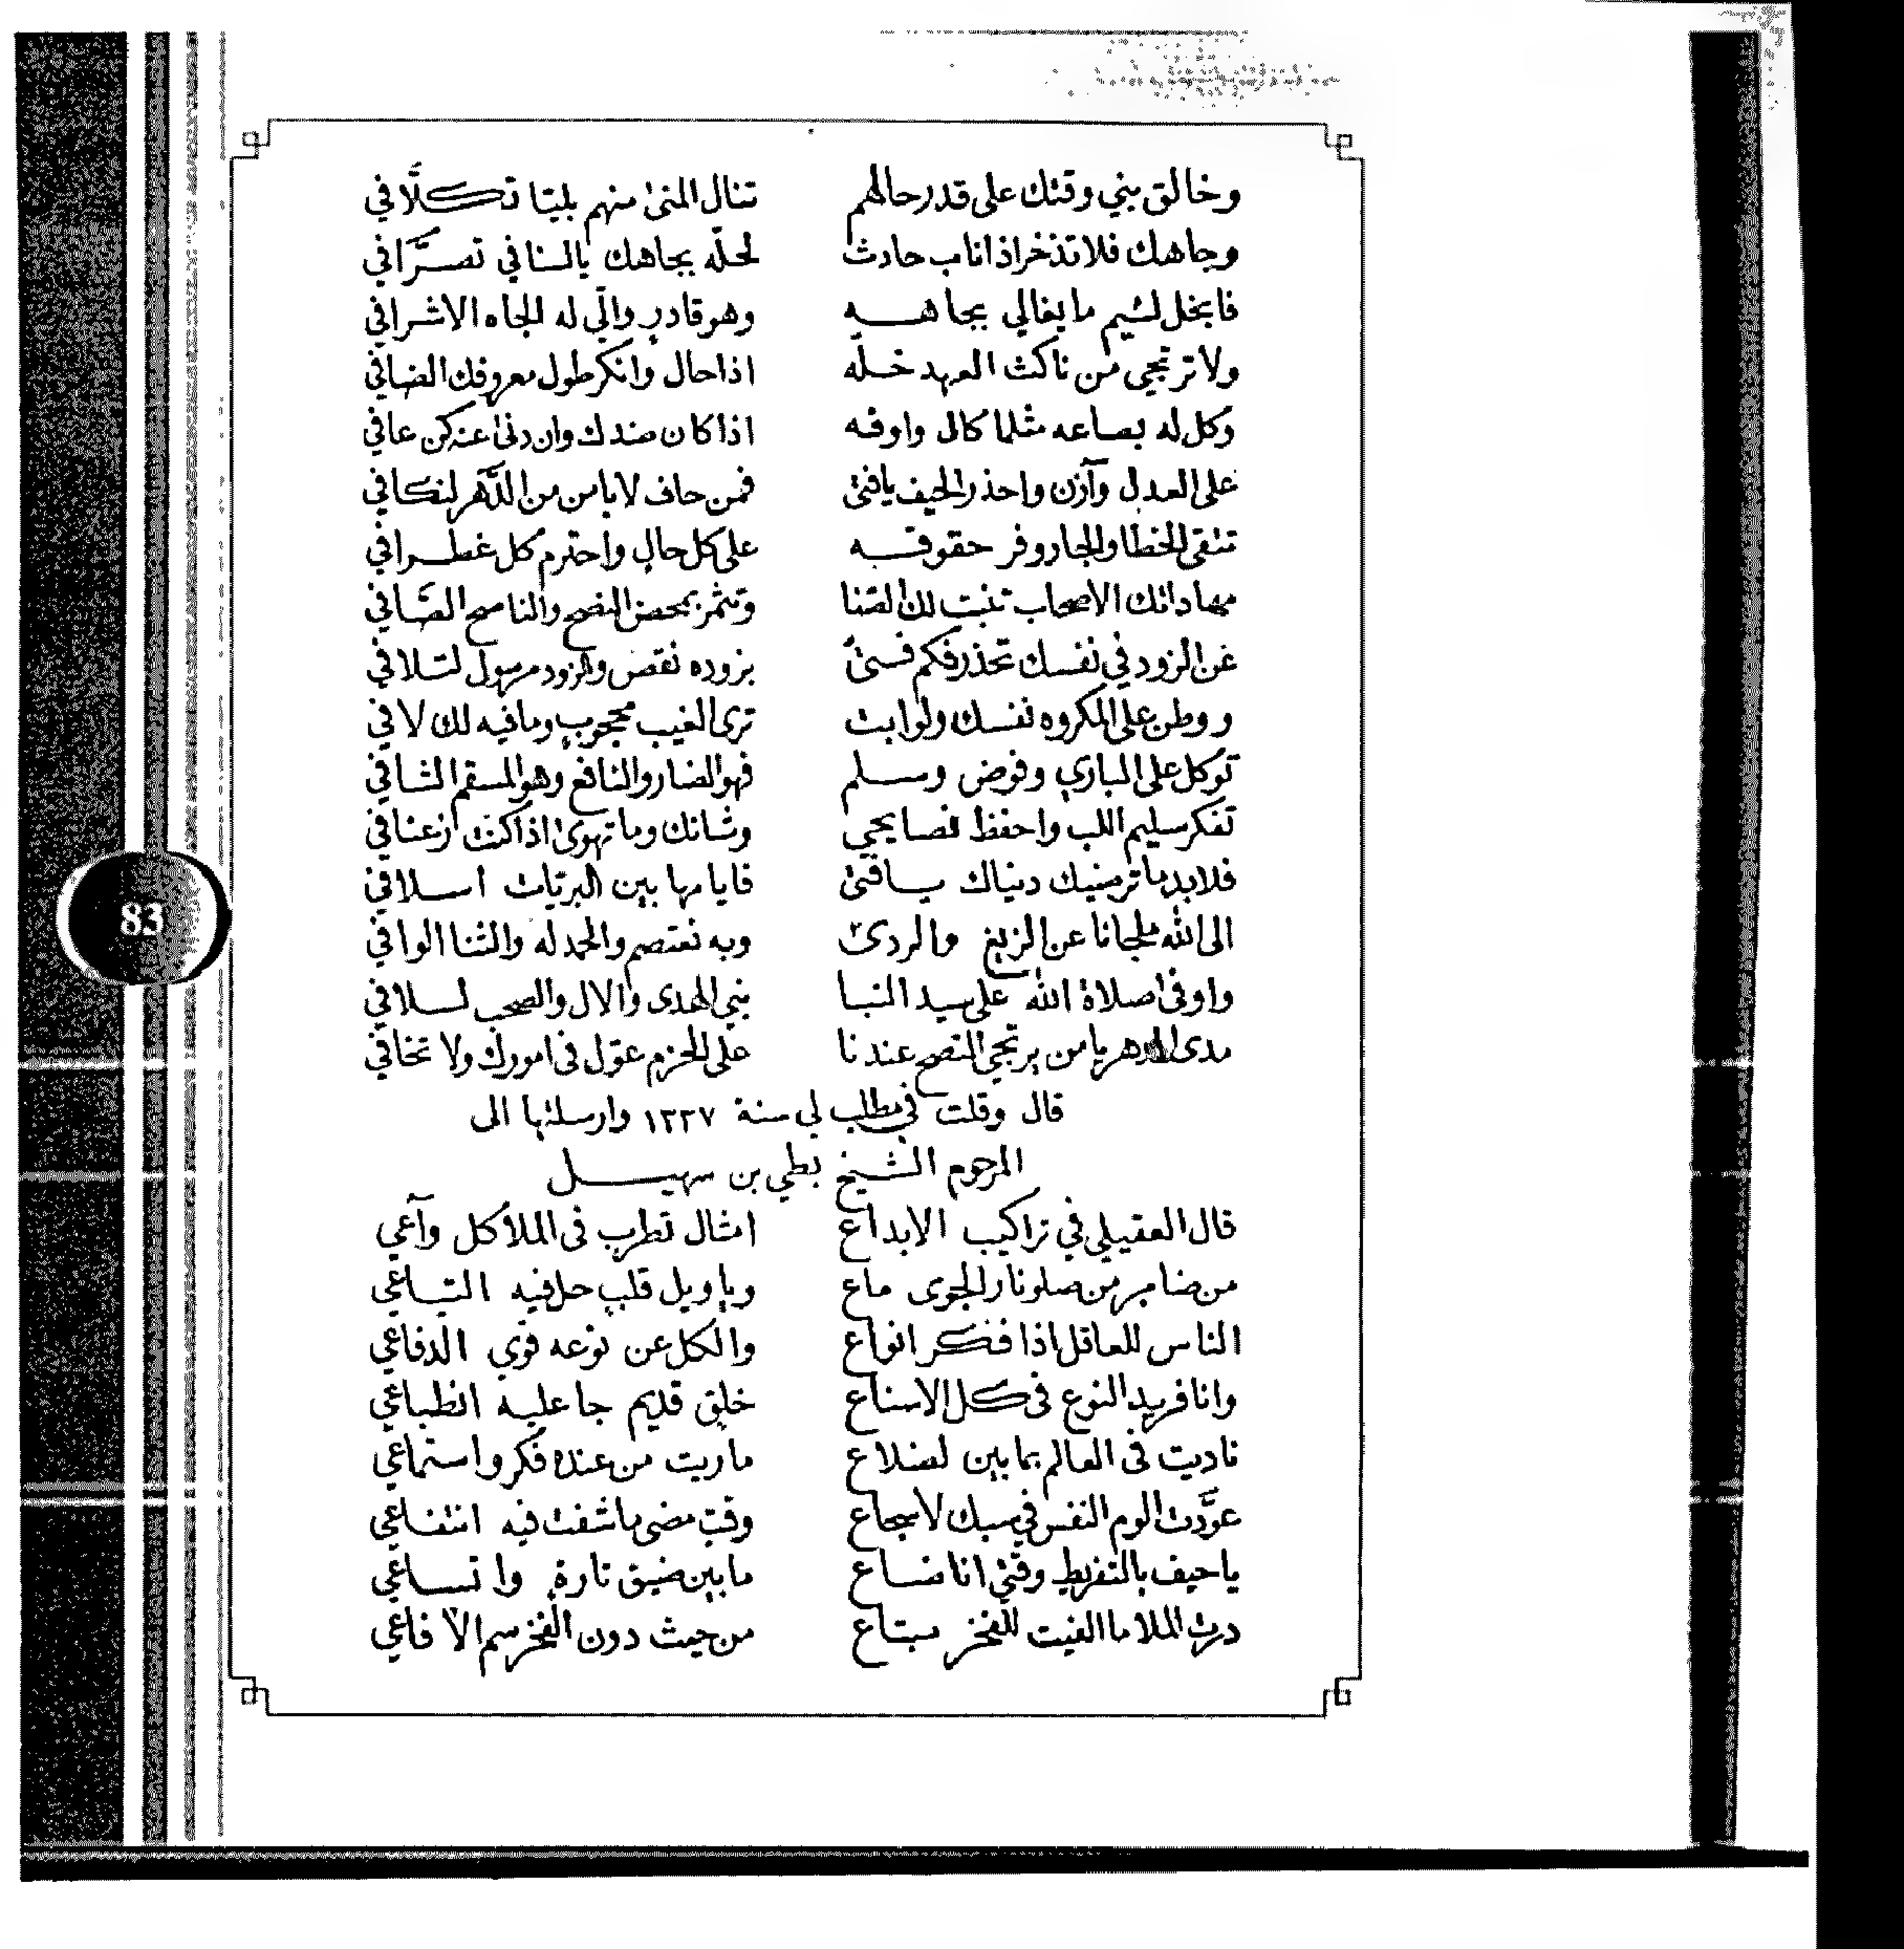 وخالق بني وقتك على قدر حالهم تنال المنى منهم بليّا تكلّافي
وجاهك فلا تذخر اذا ناب حادث لحلّه بجاهك يالسنافي تصرّافي
فا بخل لئيم ما يغالي بجاهه وهو قادر والّي له الجاه الاشرافي
ولا ترتجي من ناكث العهد خلّه اذا حال وانكر طول معروفك الضافي
وكل له بصاعه مثلما كال واوفه اذا كان ضدك وان دنى عنه كن عافي
على العدل وآزن واحذر الحيف يافتى فمن حاف لا يامن من الدّهر لنكافي
تنقى الخطا والجار وفر حقوقه على كل حال واحترم كل غطرافي
مهاداتك الاصحاب تنبت لك الثنا وتثمر بمحض النصح والناصح الصّافي
عن الزود في نفسك تحذر فكم فتىً بزوده نقص والزود مرسول لتلافي
ووطن على المكروه نفسك ولو ابت ترى الغيب محجوب وما فيه لك لافي
توكل على الباري وفوض وسلم فهو الضار والنافع وهو المسقم الشافي
تفكر سليم اللب واحفظ نصايحي وشانك وما تهوى اذا كنت زعنافي
فلا بد ما ترمنيك دنياك يافتى فايامها بين البريّات اسلافي
الى الله ملجانا عن الزيغ والردى وبه نعتصم والحمد له والثنا الوافي
واوفى اصلاة الله على سيد النبا نبي الهدى والال والصحب لسلافي
مدى الدهر يا من يرتجي النصح عندنا على الحزم عوّل فى امورك ولا تخافي
قال وقلت في مطلب لي سنة ١٣٢٧ وارسلتها الى
المرحوم الشيخ بطي بن سهيل
قال العقيلي في تراكيب الابداع امثال تطرب فى الملا كل وآعي
من ضامر من صلو نار الجوى ماع ويا ويل قلب حل فيه التياعي
الناس للعاقل اذا فكر انواع والكل عن نوعه قوي الدفاعي
وانا فريد النوع فى كل الاسناع خلق قديم جا عليه انطباعي
ناديت فى العالم بما بين لضلاع ماريت من عنده فكر واستماعي
عوّدت الوم النفس في سبك لاسجاع وقت مضى ما شفت فيه انتفاعي
يا حيف بالتفريط وقتي انا ضاع ما بين ضيق تارة واتساعي
درت الملا ما الفيت للفخر مبتاع من حيث دون الفخر سم الافاعي
83